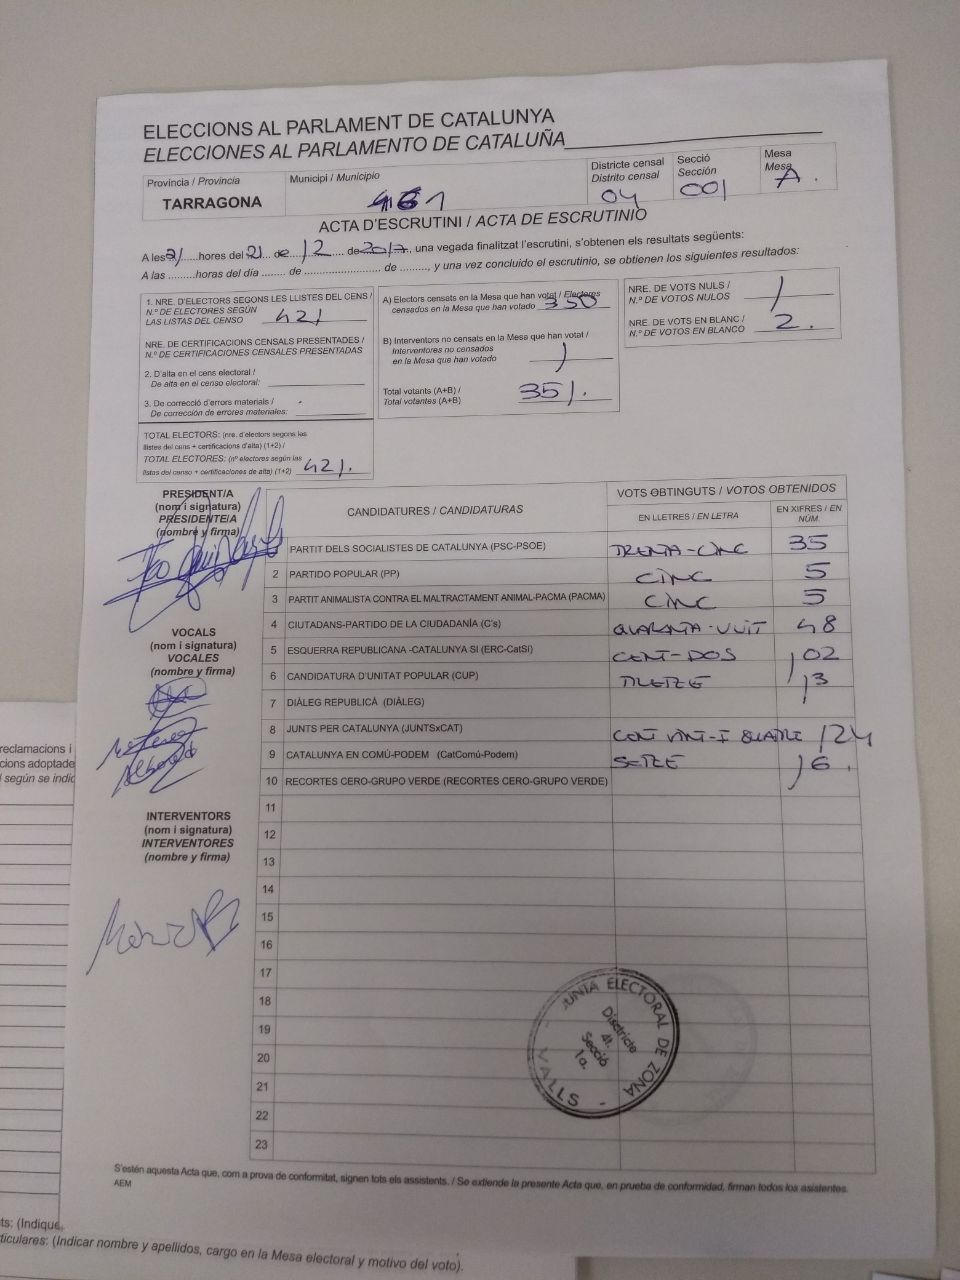 ELECCIONS AL PARLAMENT DE CATALUNYA
ELECCIONES AL PARLAMENTO DE CATALUÑA
Provincia / Provincia
TARRAGONA
Municipi / Municipio
161
Districte censal
Distrito censal
04
Secció
Sección
001
Mesa
Mesa
A.
ACTA D'ESCRUTINI / ACTA DE ESCRUTINIO
A les 21 hores del 21 de 12 de 2017, una vegada finalitzat l'escrutini, s'obtenen els resultats següents:
A las .........horas del día ........ de ........................ de ........., y una vez concluido el escrutinio, se obtienen los siguientes resultados:
1. NRE. D'ELECTORS SEGONS LES LLISTES DEL CENS /
N.º DE ELECTORES SEGÚN
LAS LISTAS DEL CENSO 421
NRE. DE CERTIFICACIONS CENSALS PRESENTADES /
N.º DE CERTIFICACIONES CENSALES PRESENTADAS
2. D'alta en el cens electoral /
De alta en el censo electoral:
3. De correcció d'errors materials /
De corrección de errores materiales:
TOTAL ELECTORS: (nre. d'electors segons les
llistes del cens + certificacions d'alta) (1+2) /
TOTAL ELECTORES: (nº electores según las
listas del censo + certificaciones de alta) (1+2) 421.
A) Electors censats en la Mesa que han votat / Electores
censados en la Mesa que han votado 350
B) Interventors no censats en la Mesa que han votat /
Interventores no censados
en la Mesa que han votado 1
Total votants (A+B) /
Total votantes (A+B) 351.
NRE. DE VOTS NULS /
N.º DE VOTOS NULOS 1
NRE. DE VOTS EN BLANC /
N.º DE VOTOS EN BLANCO 2.
PRESIDENT/A
(nom i signatura)
PRESIDENTE/A
(nombre y firma)
VOCALS
(nom i signatura)
VOCALES
(nombre y firma)
INTERVENTORS
(nom i signatura)
INTERVENTORES
(nombre y firma)
CANDIDATURES / CANDIDATURAS
VOTS OBTINGUTS / VOTOS OBTENIDOS
EN LLETRES / EN LETRA
EN XIFRES / EN NÚM.
PARTIT DELS SOCIALISTES DE CATALUNYA (PSC-PSOE) TRENTA-CINC 35
2 PARTIDO POPULAR (PP) CINC 5
3 PARTIT ANIMALISTA CONTRA EL MALTRACTAMENT ANIMAL-PACMA (PACMA) CINC 5
4 CIUTADANS-PARTIDO DE LA CIUDADANÍA (C's) QUARANTA-VUIT 48
5 ESQUERRA REPUBLICANA -CATALUNYA SI (ERC-CatSí) CENT-DOS 102
6 CANDIDATURA D'UNITAT POPULAR (CUP) TRETZE 13
7 DIÀLEG REPUBLICÀ (DIÀLEG)
8 JUNTS PER CATALUNYA (JUNTSxCAT) CENT VINT-I QUATRE 124
9 CATALUNYA EN COMÚ-PODEM (CatComú-Podem) SETZE 16.
10 RECORTES CERO-GRUPO VERDE (RECORTES CERO-GRUPO VERDE)
11
12
13
14
15
16
17
18
19
20
21
22
23
JUNTA ELECTORAL DE ZONA - VALLS -
Disctricte
4t.
Secció
1a.
S'estén aquesta Acta que, com a prova de conformitat, signen tots els assistents. / Se extiende la presente Acta que, en prueba de conformidad, firman todos los asistentes.
AEM
reclamacions i
cions adoptade
según se indic
ts: (Indique
ticulares: (Indicar nombre y apellidos, cargo en la Mesa electoral y motivo del voto).